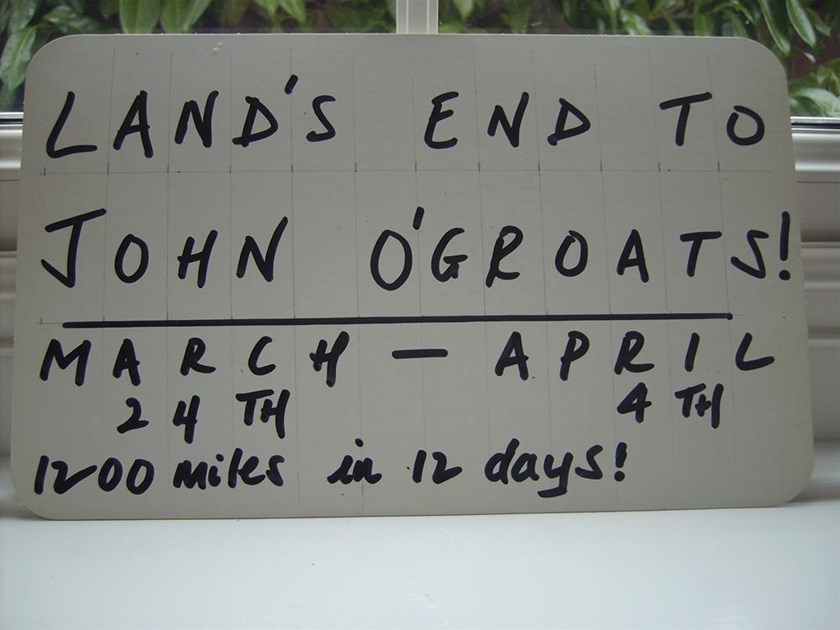 LAND'S END TO
JOHN O'GROATS!
MARCH — APRIL
24TH 4TH
1200 miles in 12 days!